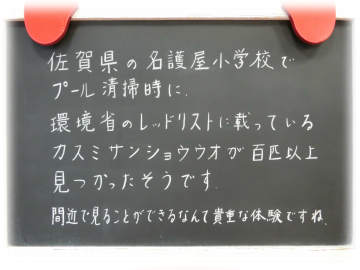 佐賀県の名護屋小学校で
プール清掃時に、
環境省のレッドリストに載っている
カスミサンショウウオが百匹以上
見つかったそうです。
間近で見ることができるなんて貴重な体験ですね。